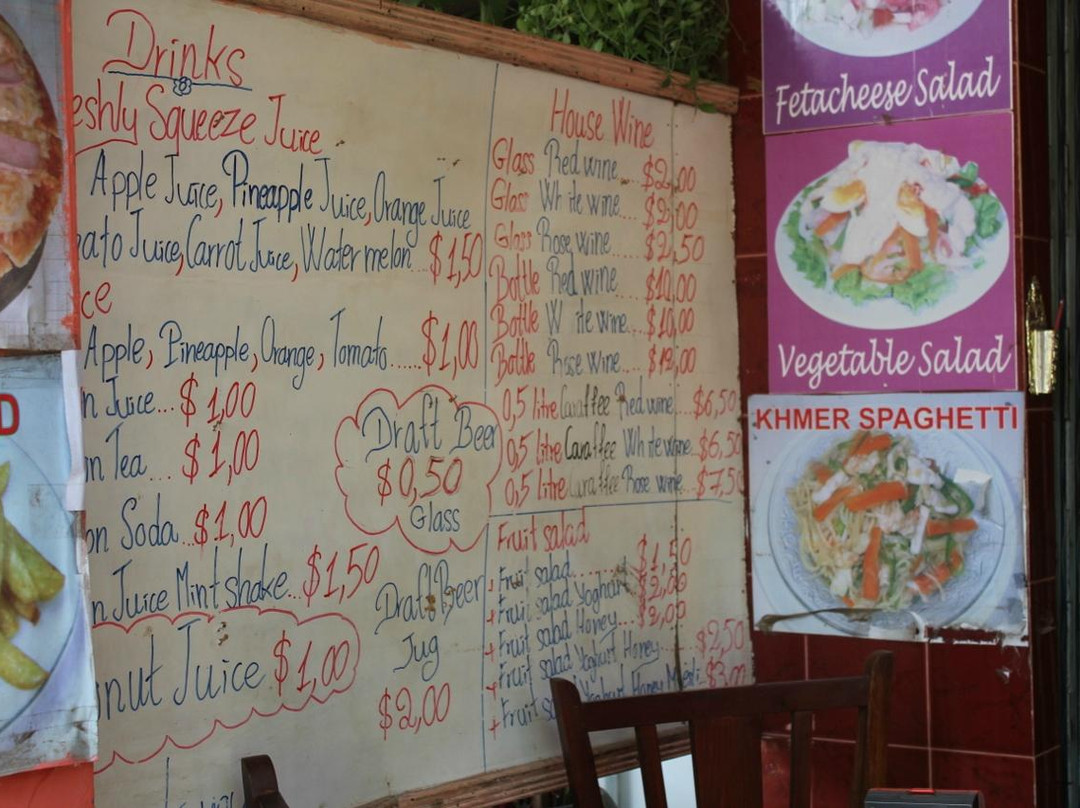 Drinks
eshly Squeeze Juice
Apple Juice, Pineapple Juice, Orange Juice
ato Juice, Carrot Juice, Watermelon $1,50
ce
Apple, Pineapple, Orange, Tomato......$1,00
n Juice... $1,00
n Tea... $1,00
on Soda..$1,00
n Juice Mint shake...$1,50
nut Juice $1,00
Draft Beer
$0,50
Glass
Draft Beer
Jug
$2,00
House Wine
Glass Red wine.... $2,00
Glass White wine.... $2,00
Glass Rose wine.... $2,50
Bottle Red wine..... $10,00
Bottle W ite wine... $10,00
Bottle Rose wine.... $12,00
0,5 litre Caraffee Red wine...$6,50
0,5 litre Caraffee White wine..$6,50
0,5 litre Caraffee Rose wine...$7,50
Fruit salad
+ Fruit salad......... $1,50
+ Fruit salad Yoghurt $2,00
+ Fruit salad Honey.... $2,00
+ Fruit salad Yoghurt Honey.... $2,50
+ Fruit sa Yoghurt Honey Muesli $3,00
Fetacheese Salad
Vegetable Salad
KHMER SPAGHETTI
D